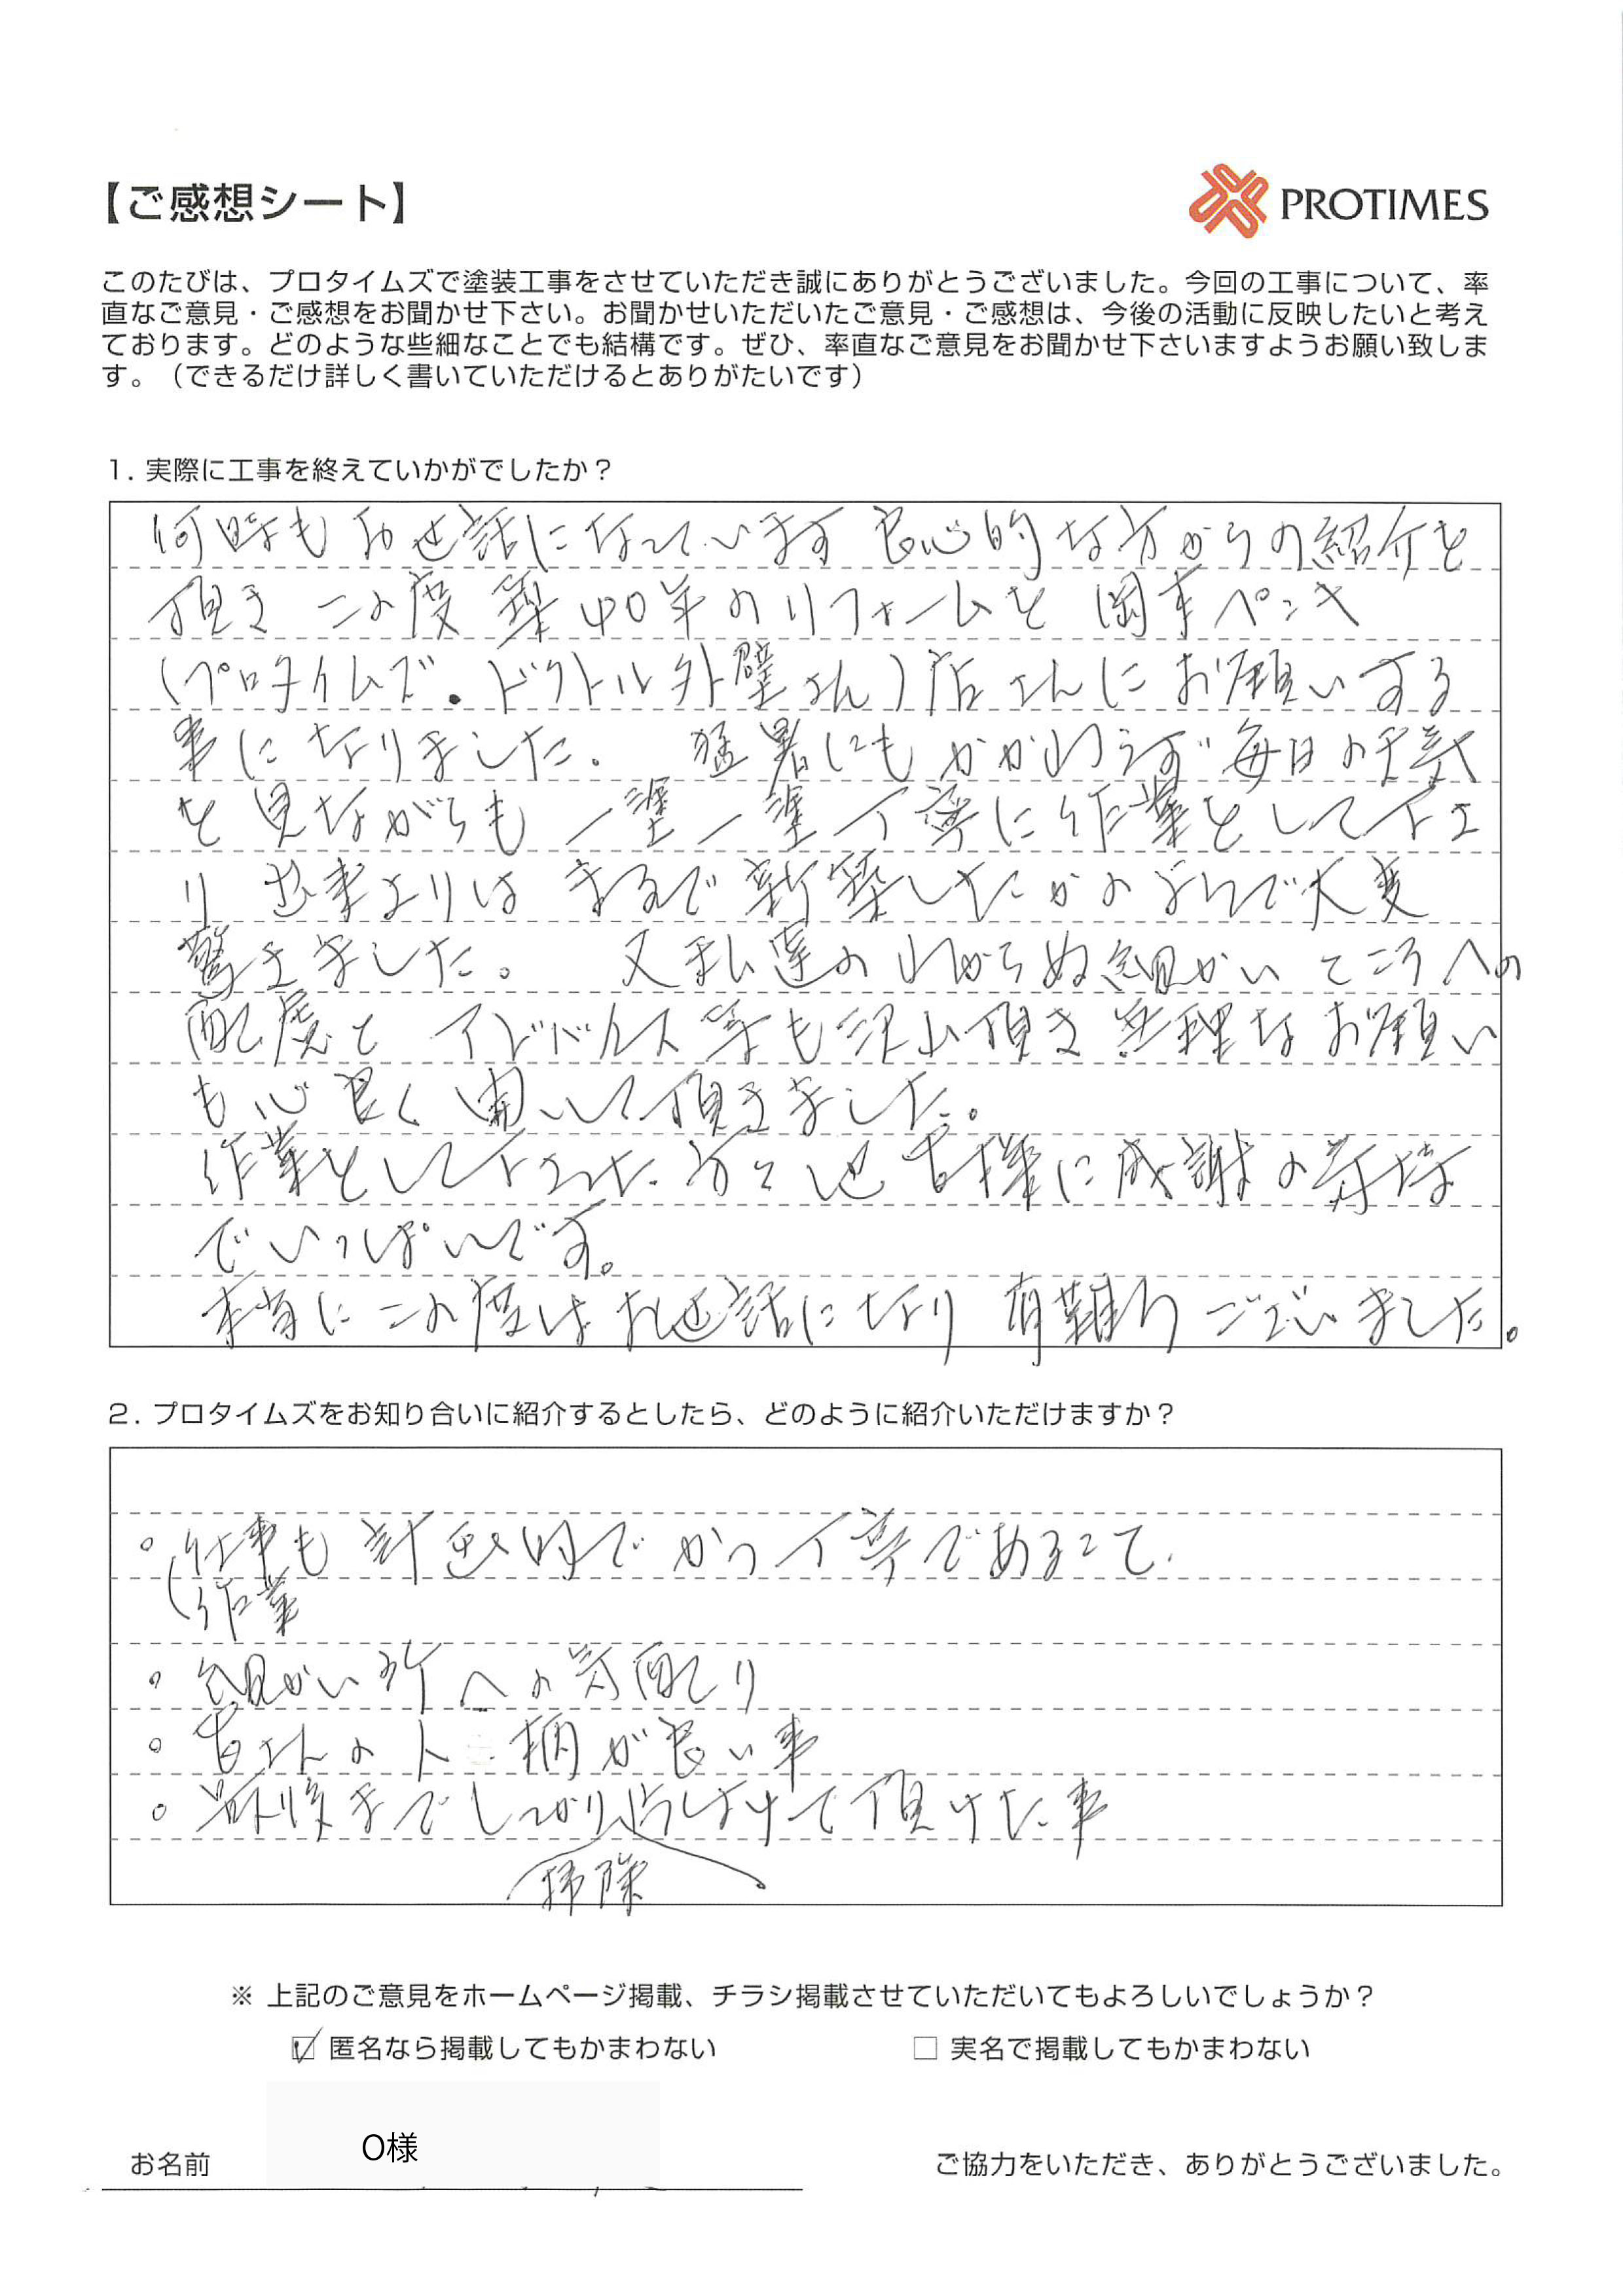 【ご感想シート】
PROTIMES
このたびは、プロタイムズで塗装工事をさせていただき誠にありがとうございました。今回の工事について、率
直なご意見・ご感想をお聞かせ下さい。お聞かせいただいたご意見・ご感想は、今後の活動に反映したいと考え
ております。どのような些細なことでも結構です。ぜひ、率直なご意見をお聞かせ下さいますようお願い致しま
す。（できるだけ詳しく書いていただけるとありがたいです）
1. 実際に工事を終えていかがでしたか？
何時もお世話になっています 良心的な方からの紹介を
頂き この度 築40年のリフォームを 岡本ペンキ
(プロタイムズ・ドクトル外壁さん)店さんにお願いする
事になりました。 猛暑にもかかわらず 毎日の天気
を見ながらも 一塗一塗丁寧に作業をして下さ
り 出来上りは まるで新築したかのようで大変
驚きました。 又私達のわからぬ細かいところへの
配慮と アドバイス等も沢山頂き 無理なお願い
も心良く聞いて頂きました。
作業をして下さった方々 皆様に感謝の気持
でいっぱいです。
本当にこの度はお世話になり 有難うございました。
2. プロタイムズをお知り合いに紹介するとしたら、どのように紹介いただけますか？
。仕事も計画的でかつ丁寧であること.
(作業
。細かい所への気配り
。皆さんの人柄が良い事
。最後までしっかり片付けて頂けた事
掃除
※ 上記のご意見をホームページ掲載、チラシ掲載させていただいてもよろしいでしょうか？
☑ 匿名なら掲載してもかまわない □ 実名で掲載してもかまわない
お名前 O様 ご協力をいただき、ありがとうございました。